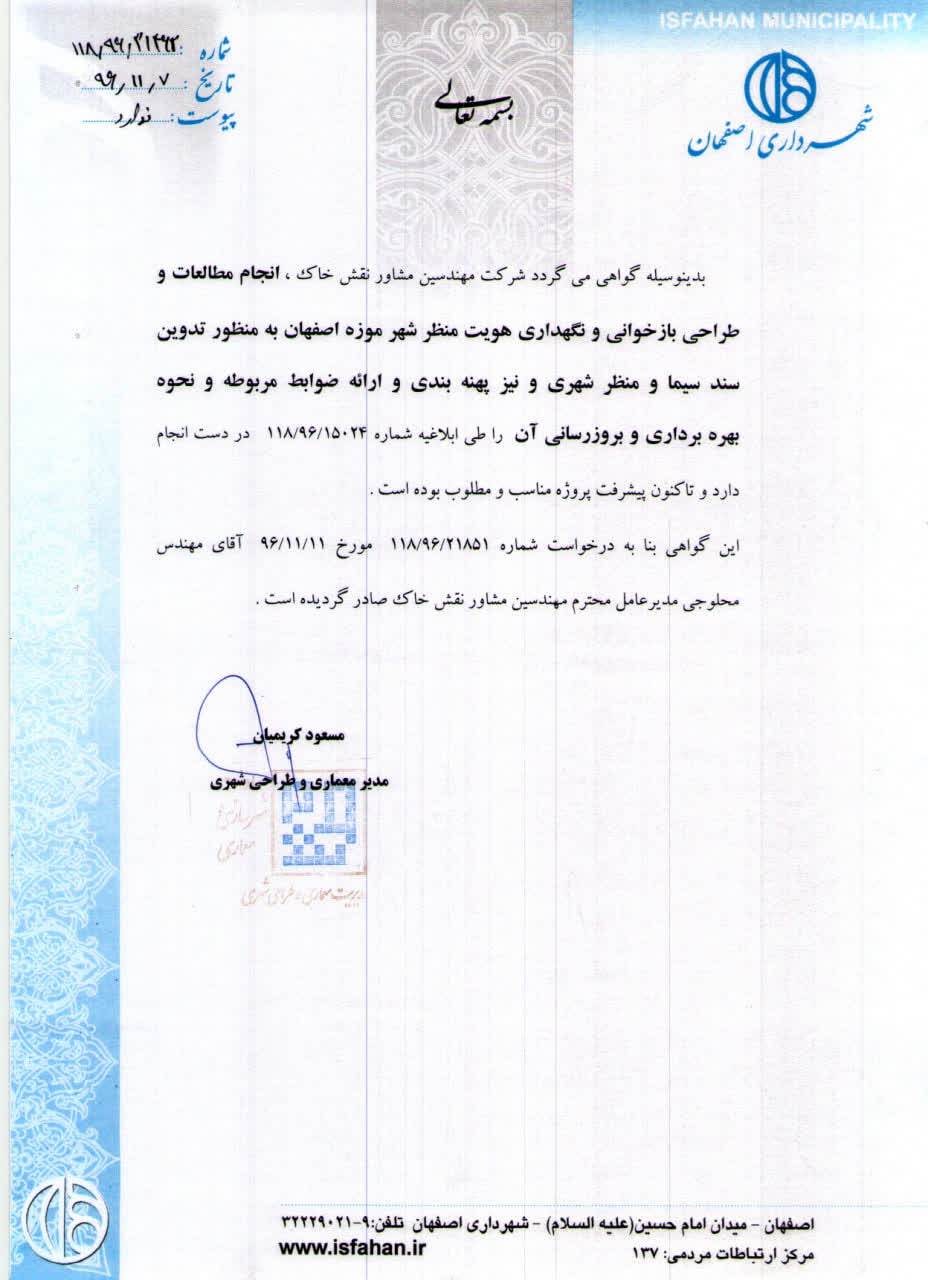 ISFAHAN MUNICIPALITY
شهرداری اصفهان
بسمه تعالی
شماره :
تاریخ : ۹۶٫۱۱٫۷
پیوست : ندارد
بدینوسیله گواهی می گردد شرکت مهندسین مشاور نقش خاک ، انجام مطالعات و
طراحی بازخوانی و نگهداری هویت منظر شهر موزه اصفهان به منظور تدوین
سند سیما و منظر شهری و نیز پهنه بندی و ارائه ضوابط مربوطه و نحوه
بهره برداری و بروزرسانی آن را طی ابلاغیه شماره ۱۱۸/۹۶/۱۵۰۲۴ در دست انجام
دارد و تاکنون پیشرفت پروژه مناسب و مطلوب بوده است .
این گواهی بنا به درخواست شماره ۱۱۸/۹۶/۲۱۸۵۱ مورخ ۹۶/۱۱/۱۱ آقای مهندس
محلوجی مدیرعامل محترم مهندسین مشاور نقش خاک صادر گردیده است .
مسعود کریمیان
مدیر معماری و طراحی شهری
شهرسازی و
معماری
مدیریت معماری و طراحی شهری
اصفهان - میدان امام حسین(علیه السلام) - شهرداری اصفهان تلفن:۹-۳۲۲۲۹۰۲۱
مرکز ارتباطات مردمی: ۱۳۷
www.isfahan.ir